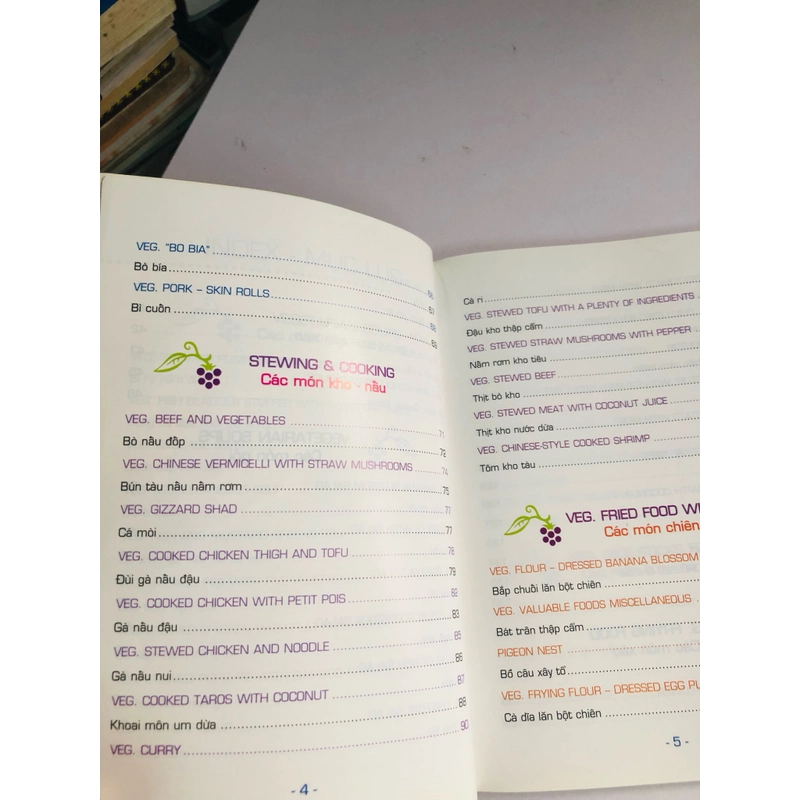 VEG. "BO BIA"
Bò bía
VEG. PORK – SKIN ROLLS
Bì cuốn
66
67
68
69
STEWING & COOKING
Các món kho - nấu
VEG. BEEF AND VEGETABLES 71
Bò nấu đốp 72
VEG. CHINESE VERMICELLI WITH STRAW MUSHROOMS 74
Bún tàu nấu nấm rơm 75
VEG. GIZZARD SHAD 77
Cá mòi 77
VEG. COOKED CHICKEN THIGH AND TOFU 78
Đùi gà nấu đậu 79
VEG. COOKED CHICKEN WITH PETIT POIS 82
Gà nấu đậu 83
VEG. STEWED CHICKEN AND NOODLE 85
Gà nấu nui 86
VEG. COOKED TAROS WITH COCONUT 87
Khoai môn um dừa 88
VEG. CURRY 90
- 4 -
Cà ri
VEG. STEWED TOFU WITH A PLENTY OF INGREDIENTS
Đậu kho thập cẩm
VEG. STEWED STRAW MUSHROOMS WITH PEPPER
Nấm rơm kho tiêu
VEG. STEWED BEEF
Thịt bò kho
VEG. STEWED MEAT WITH COCONUT JUICE
Thịt kho nước dừa
VEG. CHINESE-STYLE COOKED SHRIMP
Tôm kho tàu
VEG. FRIED FOOD
Các món chiên
VEG. FLOUR – DRESSED BANANA BLOSSOM
Bắp chuối lăn bột chiên
VEG. VALUABLE FOODS MISCELLANEOUS
Bát trân thập cẩm
PIGEON NEST
Bồ câu xây tổ
VEG. FRYING FLOUR – DRESSED EGG
Cà dĩa lăn bột chiên
- 5 -